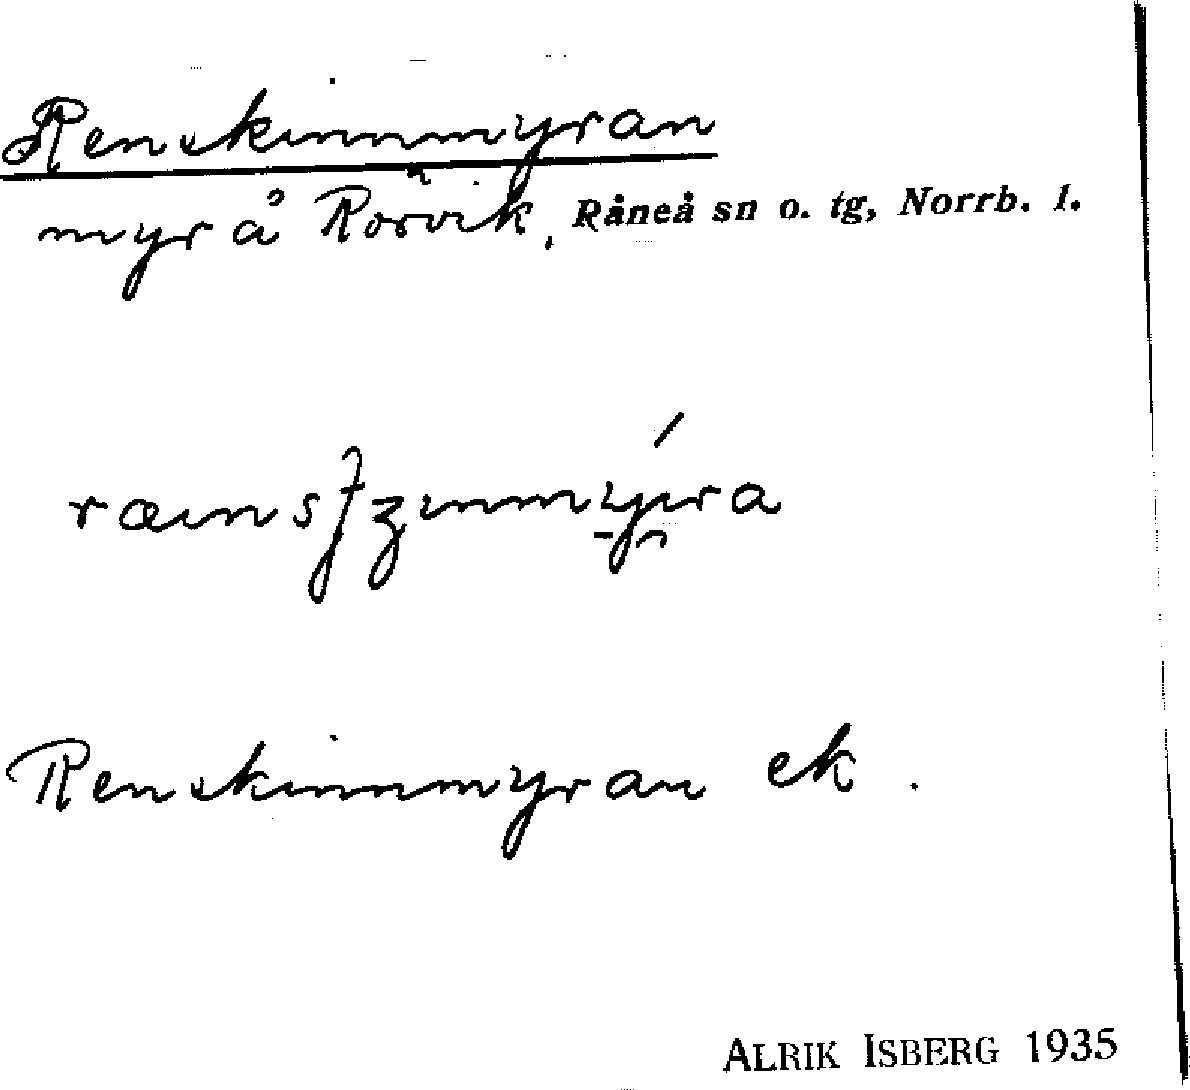 Renskinnmyran
myr å Rörvik, Råneå sn o. tg, Norrb. l.
Renskinnmyran ek.
ALRIK ISBERG 1935